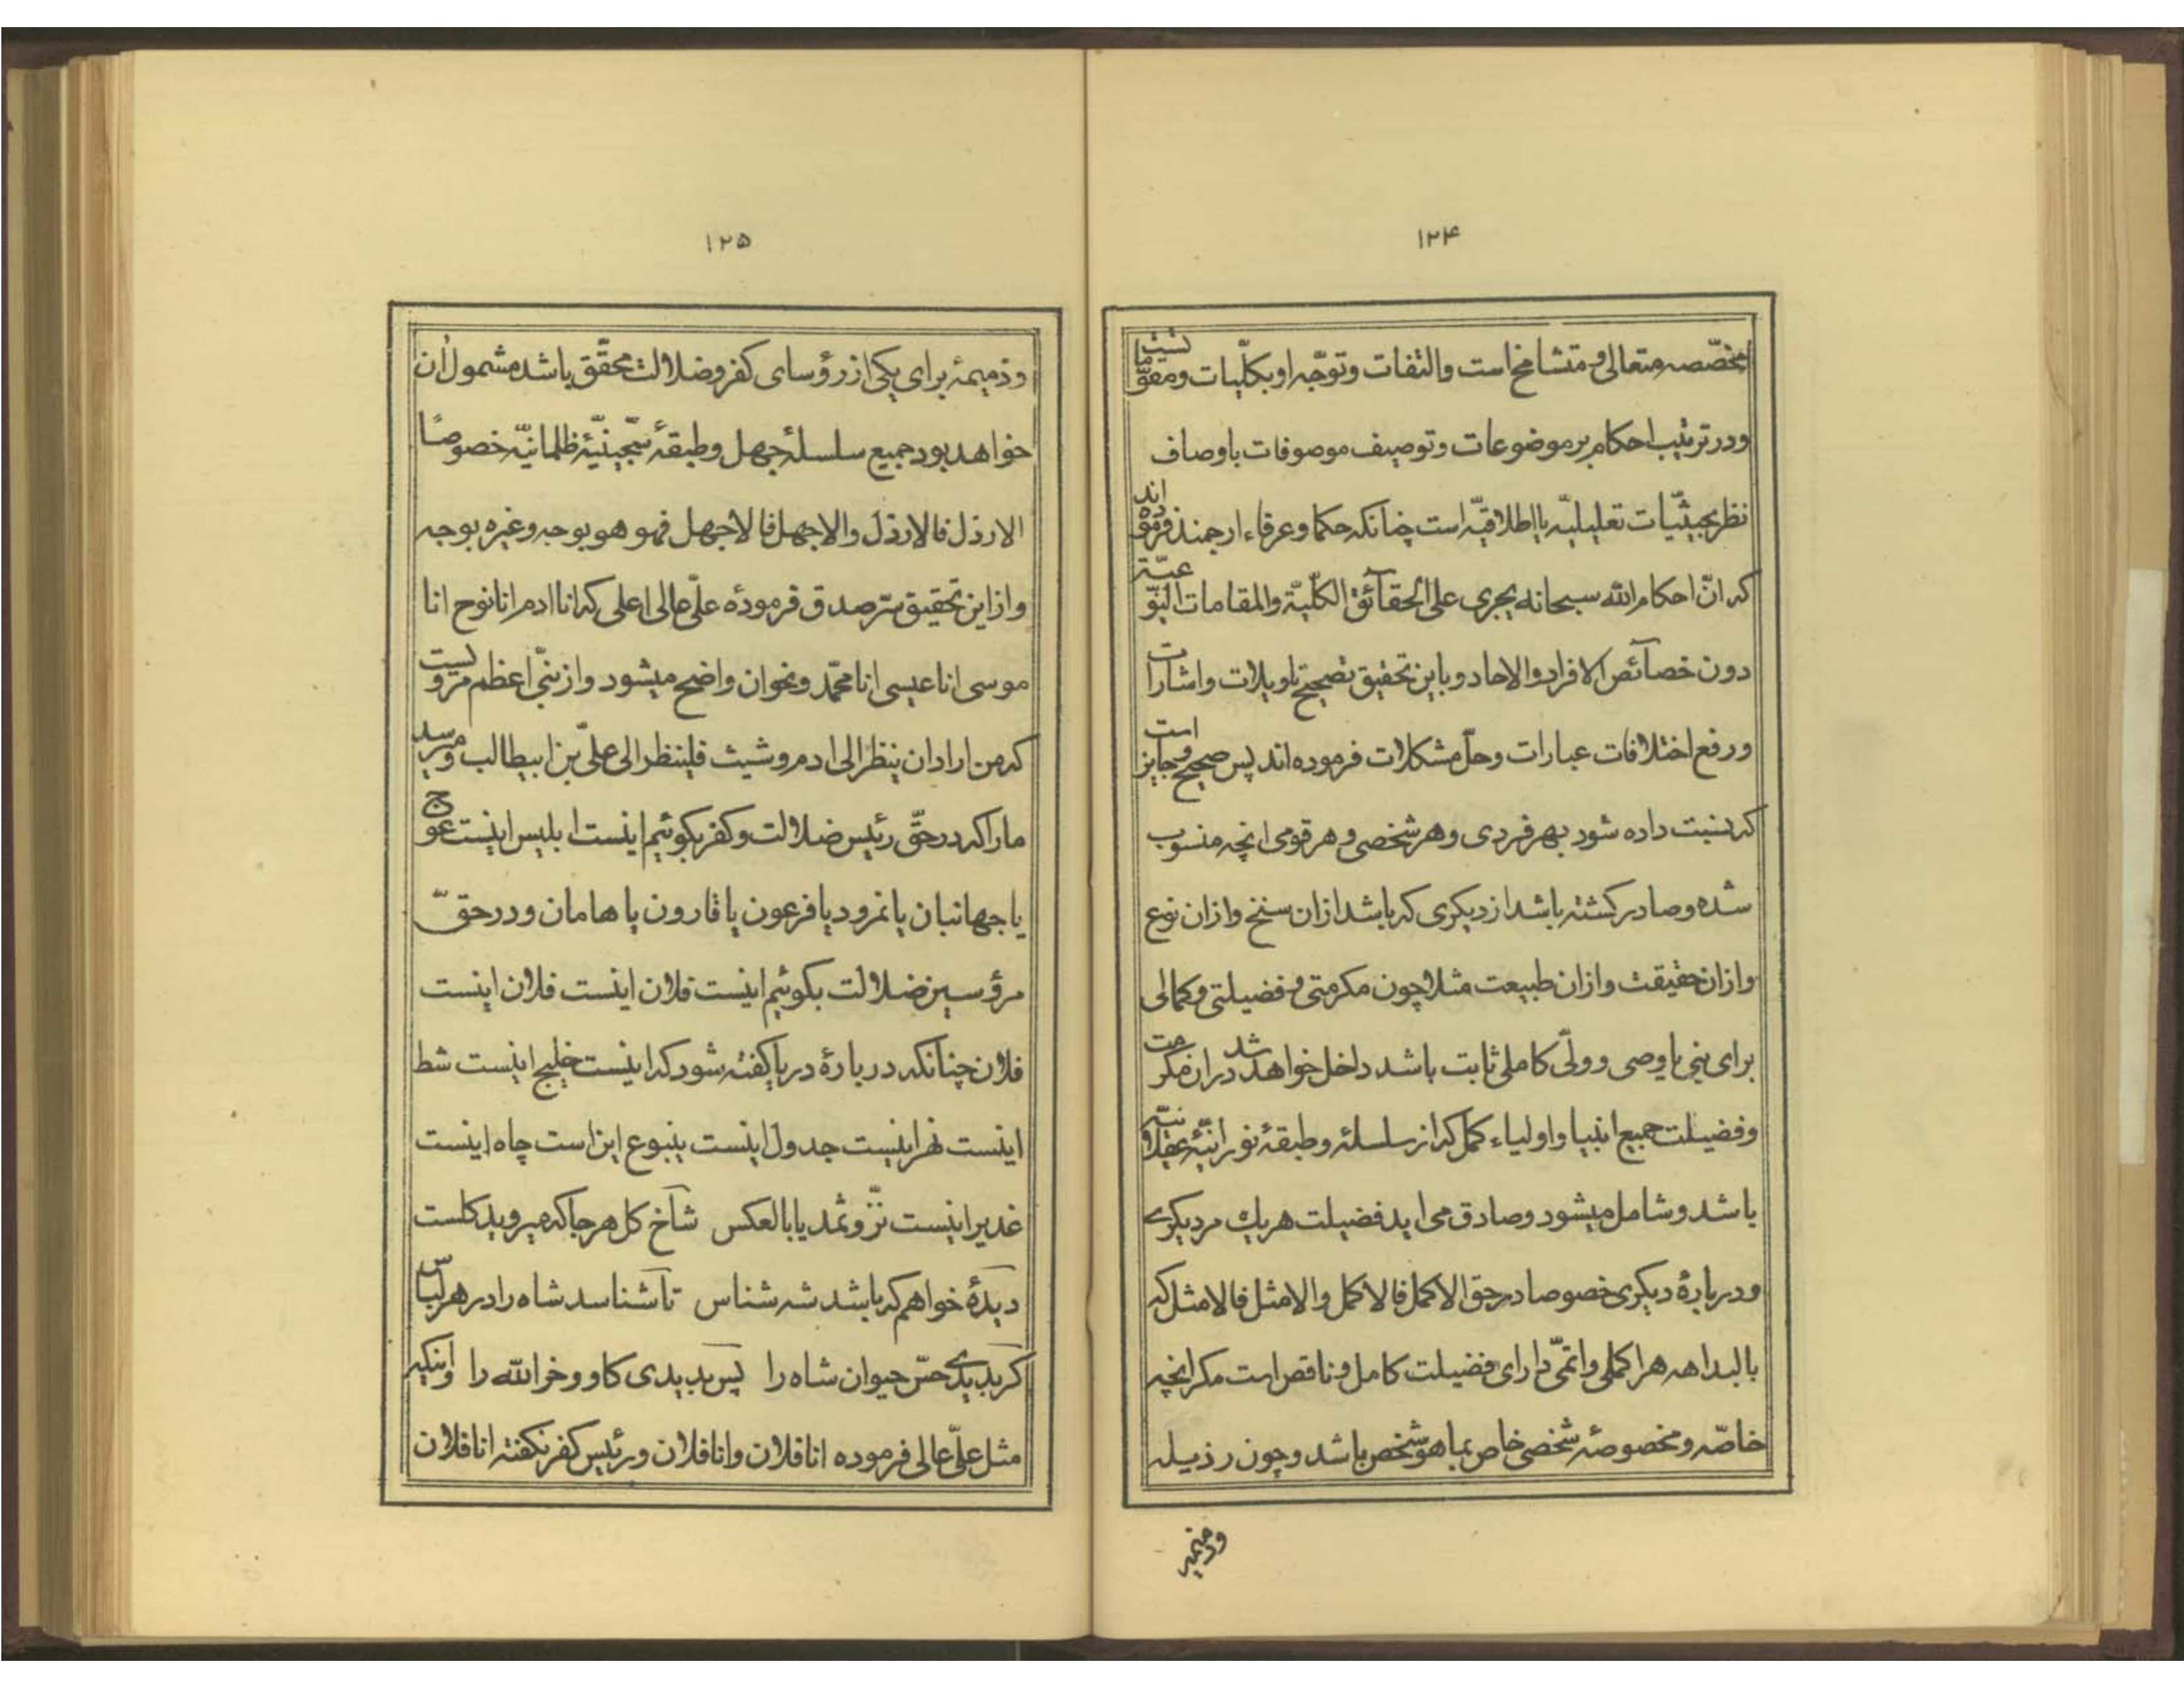 ۱۲۴
مخصّصه متعالی و متشامخ است والتفات وتوجّه او بکلّیات ومقوّماتست
ودر ترتیب احکام بر موضوعات وتوصیف موصوفات باوصاف
نظر بحیثّیات تعلیلیّه یا اطلاقیّه است چنانکه حکما وعرفاء ارجمند فرموده‌اند
که انّ احکام الله سبحانه یجری علی الحقآئق الکلّیّة والمقامات النّوعیّة
دون خصآئص الافراد والاحاد وباین تحقیق تصحیح تاویلات واشارات
ورفع اختلافات عبارات وحلّ مشکلات فرموده اند پس صحیح وجایز است
که نسبت داده شود بهر فردی وهر شخصی وهر قومی انچه منسوب
شده وصادر کشته باشد از دیکری که باشد ازان سنخ وازان نوع
وازان حقیقت وازان طبیعت مثلا چون مکرمتی وفضیلتی وکمالی
برای نبی یا وصی وولّی کاملی ثابت باشد داخل خواهد شد دران مکرمت
وفضیلت جمیع انبیا واولیاء کمّل که از سلسلهٔ وطبقهٔ نورانیّهٔ
باشد وشامل میشود وصادق می اید فضیلت هریك مر دیکری
ودربارهٔ دیکری خصوصا در حق الاکمل فالاکمل والامثل فالامثل که
بالبداهه هر اکملی واتمّی دارای فضیلت کامل وناقص است مکر انچه
خاصّه ومخصوصهٔ شخصی خاص بما هو شخص باشد وچون رذیله
وذمیمهٔ
۱۲۵
وذمیمهٔ برای یکی از رؤسای کفر وضلالت محقّق باشد مشمول ان
خواهد بود جمیع سلسلهٔ جهل وطبقهٔ سجّینیّهٔ ظلمانیّه خصوصًا
الارذل فالارذل والاجهل فالاجهل فهو هو بوجه وغیره بوجه
وازاین تحقیق سرّ صدق فرمودهٔ علّی عالی اعلی که انا ادم انا نوح انا
موسی انا عیسی انا محمّد ونحوان واضح میشود واز نبّی اعظم مرویست
که من اراد ان ینظر الی ادم وشیث فلینظر الی علّی بن ابیطالب ومیرسد
ما را که در حقّ رئیس ضلالت وکفر بکوئیم اینست ابلیس اینست عوج
یا جهانبان یا نمرود یا فرعون یا قارون یا هامان ودر حقّ
مرؤسین ضلالت بکوئیم اینست فلان اینست فلان اینست
فلان چنانکه دربارهٔ دریا کفته شود که اینست خلیج اینست شط
اینست نهر اینست جدول اینست ینبوع این است چاه اینست
غدیر اینست نزّ وثمد یا بالعکس شاخ کل هر جا که میروید کلست
دیدهٔ خواهم که باشد شه شناس تا شناسد شاه را در هر لباس
کر بدیدی حسّ حیوان شاه را پس بدیدی کاو وخر الله را واینکه
مثل علّی عالی فرموده انا فلان وانا فلان ورئیس کفر نکفته انا فلان